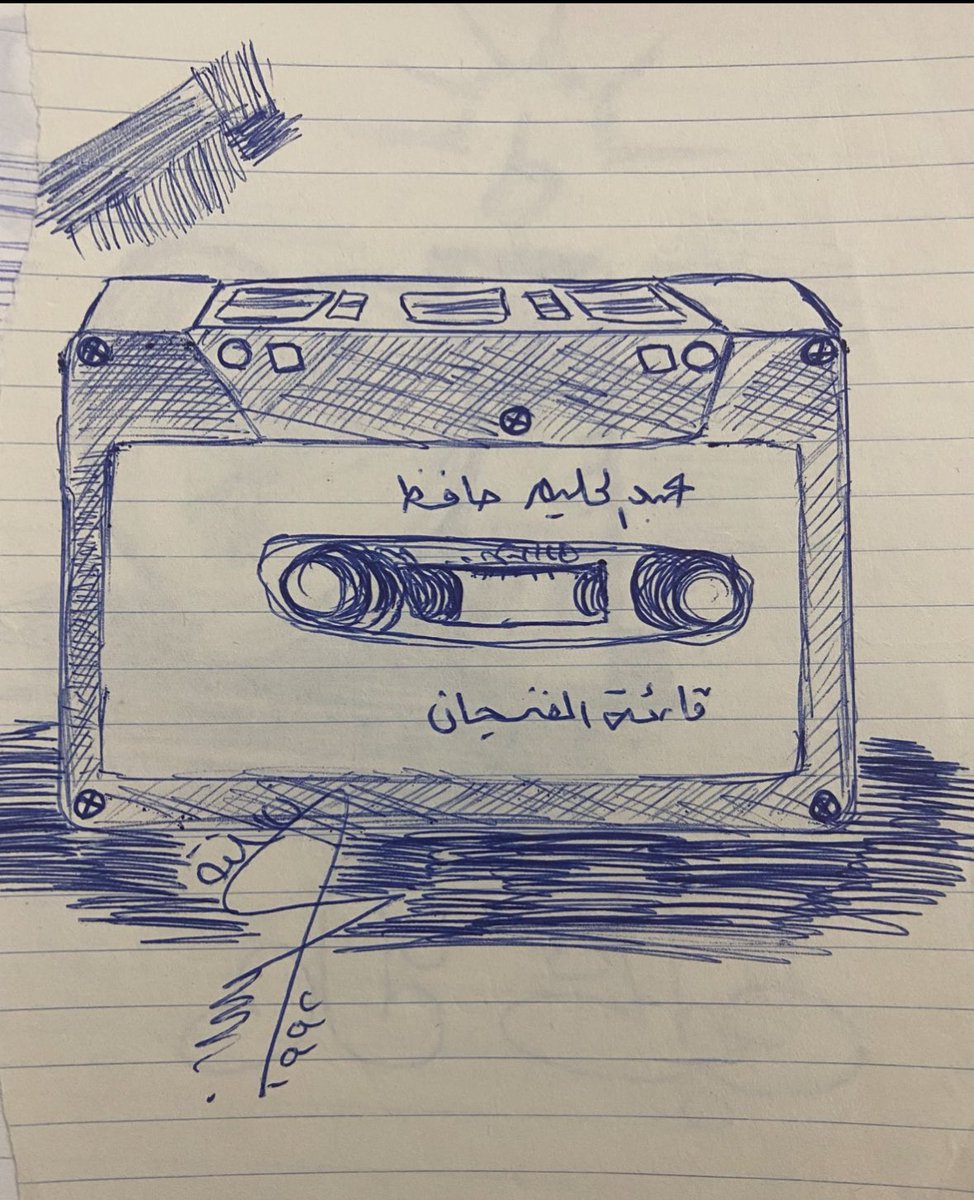 عبد الحليم حافظ
قارئة الفنجان